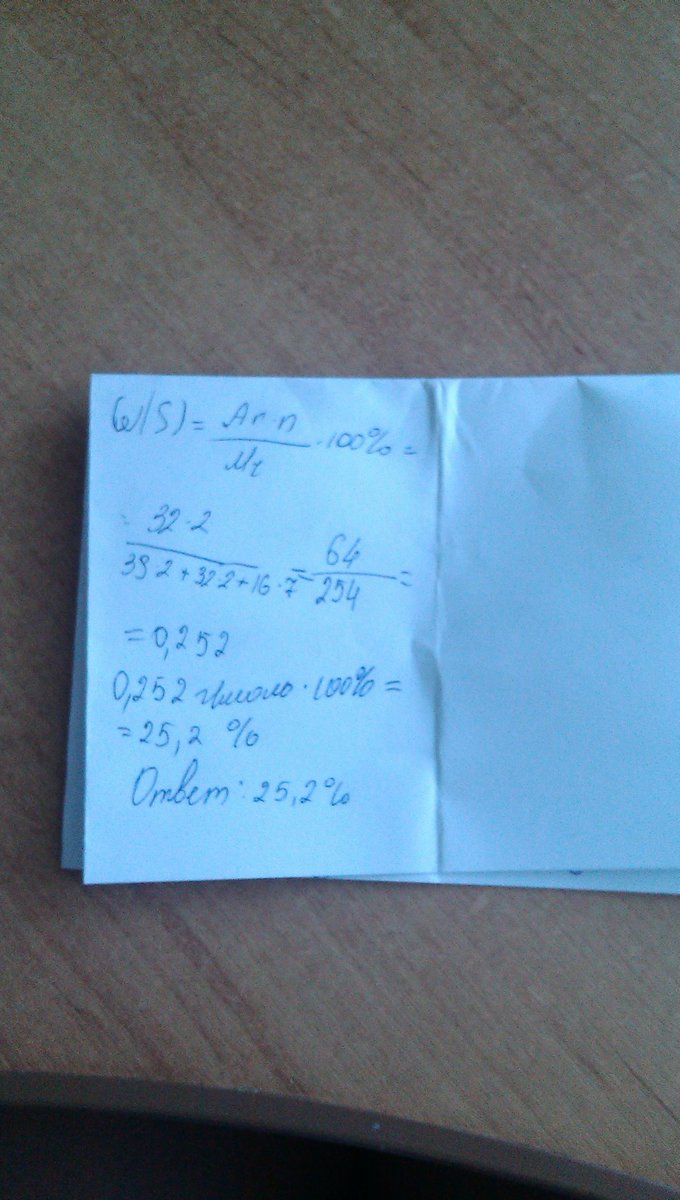 W(S) = Ar·n / Mr · 100% =
= 32·2 / 39·2+32·2+16·7 = 64 / 254 =
= 0,252
0,252 · 100% =
= 25,2 %
Ответ: 25,2%